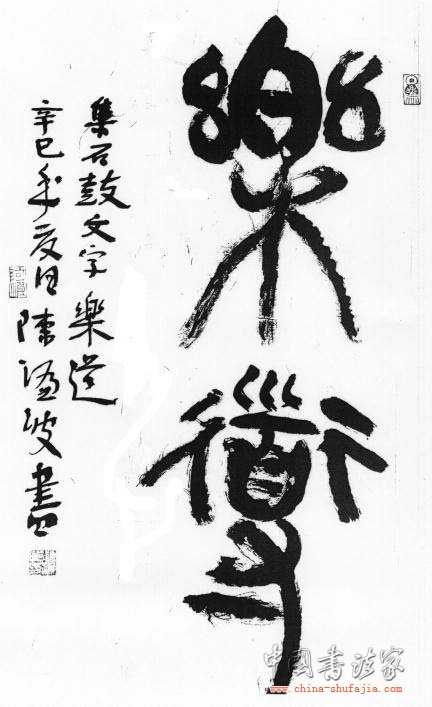 樂道
集石鼓文字樂道
辛巳年夏月陳
書
中國書法家
www.china-shufajia.com